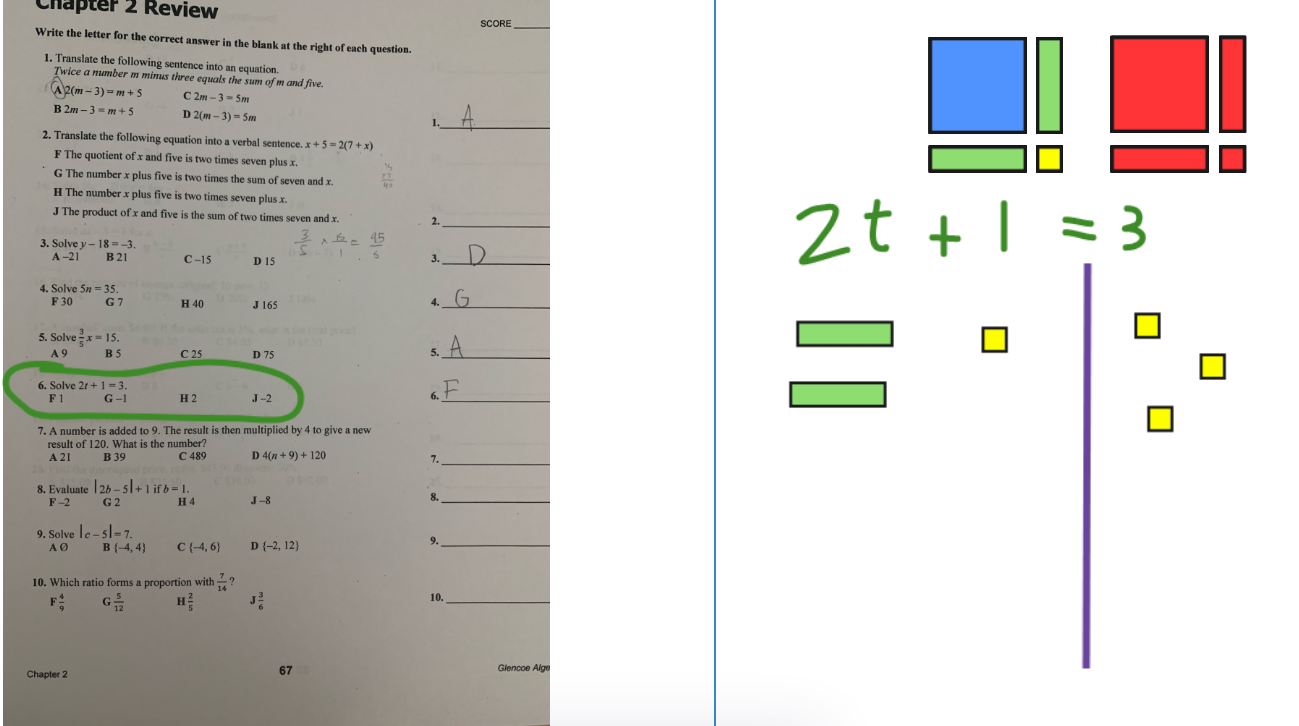 Chapter 2 Review
SCORE
Write the letter for the correct answer in the blank at the right of each question.
1. Translate the following sentence into an equation.
Twice a number m minus three equals the sum of m and five.
A 2(m – 3) = m + 5 C 2m – 3 = 5m
B 2m – 3 = m + 5 D 2(m – 3) = 5m
1. A
2. Translate the following equation into a verbal sentence. x + 5 = 2(7 + x)
F The quotient of x and five is two times seven plus x.
G The number x plus five is two times the sum of seven and x.
H The number x plus five is two times seven plus x.
J The product of x and five is the sum of two times seven and x.
2.
3/5 × 15/1 = 45/5
3. Solve y – 18 = –3.
A –21 B 21 C –15 D 15
3. D
4. Solve 5n = 35.
F 30 G 7 H 40 J 165
4. G
5. Solve 3/5 x = 15.
A 9 B 5 C 25 D 75
5. A
6. Solve 2t + 1 = 3.
F 1 G –1 H 2 J –2
6. F
7. A number is added to 9. The result is then multiplied by 4 to give a new
result of 120. What is the number?
A 21 B 39 C 489 D 4(n + 9) + 120
7.
8. Evaluate |2b – 5| + 1 if b = 1.
F –2 G 2 H 4 J –8
8.
9. Solve |c – 5| = 7.
A Ø B {–4, 4} C {–4, 6} D {–2, 12}
9.
10. Which ratio forms a proportion with 7/14?
F 4/9 G 5/12 H 2/5 J 3/6
10.
Chapter 2 67 Glencoe Alge
2t + 1 = 3